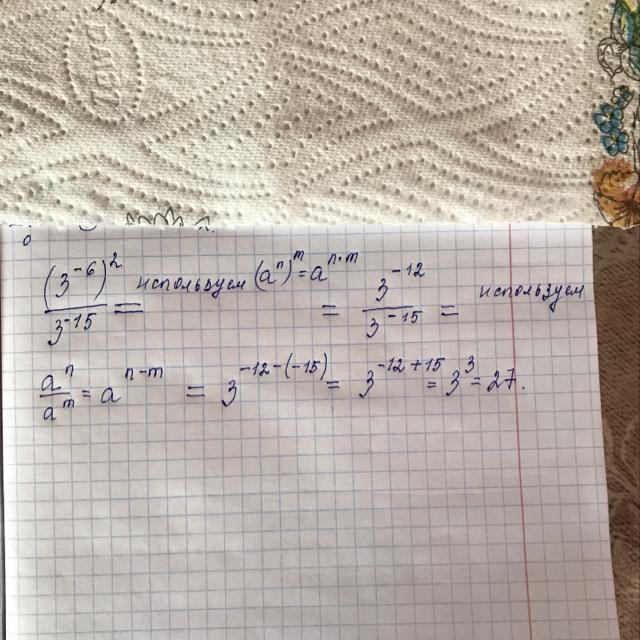 (3^-6)^2 / 3^-15 = используем (a^n)^m = a^n·m = 3^-12 / 3^-15 = используем
a^n / a^m = a^n-m = 3^-12-(-15) = 3^-12+15 = 3^3 = 27.